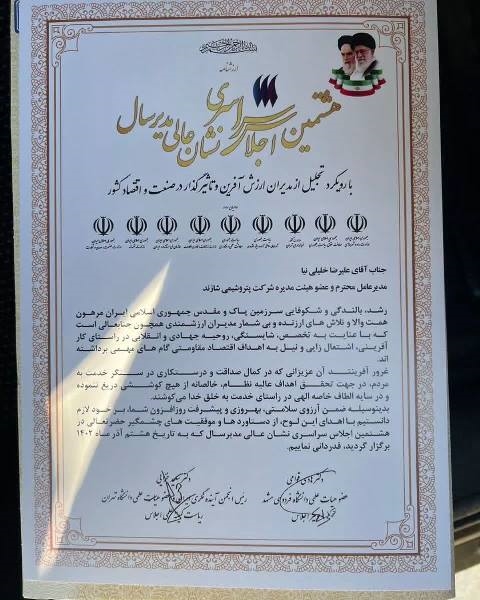 هشتمین اجلاس سراسری
نشان عالی مدیر سال
با رویکرد تجلیل از مدیران ارزش آفرین و تاثیرگذار در صنعت و اقتصاد کشور
جناب آقای علیرضا خلیلی نیا
مدیرعامل محترم و عضو هیئت مدیره شرکت پتروشیمی شازند
رشد، بالندگی و شکوفایی سرزمین پاک و مقدس جمهوری اسلامی ایران مرهون
همت والا و تلاش های ارزنده و بی شمار مدیران ارزشمندی همچون جنابعالی است
که با عنایت به تخصص، شایستگی، روحیه جهادی و انقلابی در راستای کار
آفرینی، اشتغال زایی و نیل به اهداف اقتصاد مقاومتی گام های مهمی برداشته
اند.
غرور آفرینند آن عزیزانی که در کمال صداقت و درستکاری در سنگر خدمت به
مردم، در جهت تحقق اهداف عالیه نظام، خالصانه از هیچ کوششی دریغ ننموده
و در سایه الطاف خاصه الهی در راستای خدمت به خلق خدا می‌کوشند.
بدینوسیله ضمن آرزوی سلامتی، بهروزی و پیشرفت روزافزون شما، بر خود لازم
دانستیم با اهدای این لوح، از دستاوردها و موفقیت های چشمگیر حضرتعالی در
هشتمین اجلاس سراسری نشان عالی مدیر سال که به تاریخ هشتم آذر ماه ۱۴۰۲
برگزار گردید، قدردانی نماییم.
عضو هیات علمی دانشگاه فردوسی مشهد
رئیس انجمن آینده نگری ایران و عضو هیات علمی دانشگاه تهران
ریاست اجلاس